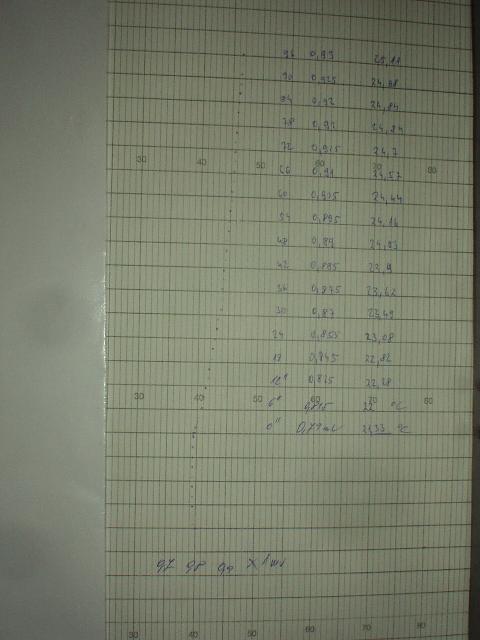 96 0,93 25,11
90 0,925 24,98
84 0,92 24,84
78 0,92 24,84
72 0,915 24,7
30 40 50 60 70 80
66 0,91 24,57
60 0,905 24,44
54 0,895 24,16
48 0,89 24,03
42 0,885 23,9
36 0,875 23,62
30 0,87 23,49
24 0,855 23,08
18 0,845 22,82
12" 0,825 22,28
30 40 50 60 70 80
6" 0,815 22 °C
0" 0,79 mV 21,33 °C
0,7 0,8 0,9 X 1mV
30 40 50 60 70 80